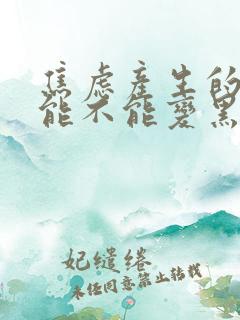 焦虑产生的
能不能变黑
妃缱绻
未经同意禁止转载